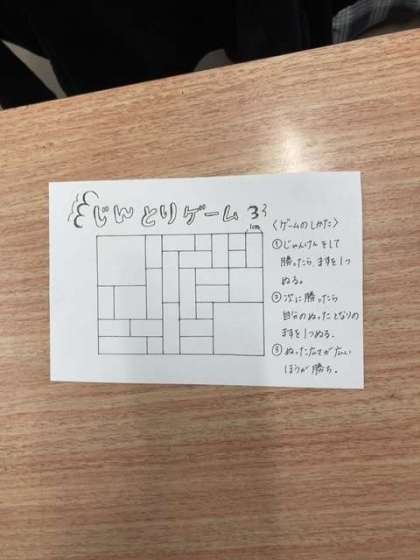 じんとりゲーム 3
1cm
〈ゲームのしかた〉
①じゃんけんをして
勝ったら ますを1つ
ぬる。
②次に勝ったら
自分のぬったとなりの
ますを1つぬる.
③ぬった が広い
ほうが勝ち.